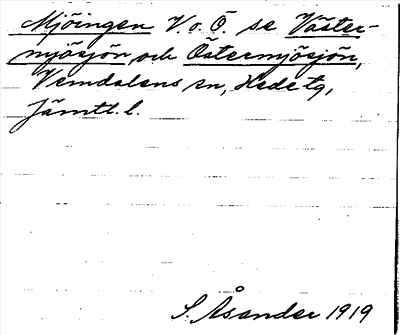 Mjöingen V. o. Ö. se Väster-
mjösjön och Östermjösjön,
Vemdalens sn, Hede tg,
Jämtl. l.
S. Åsander 1919